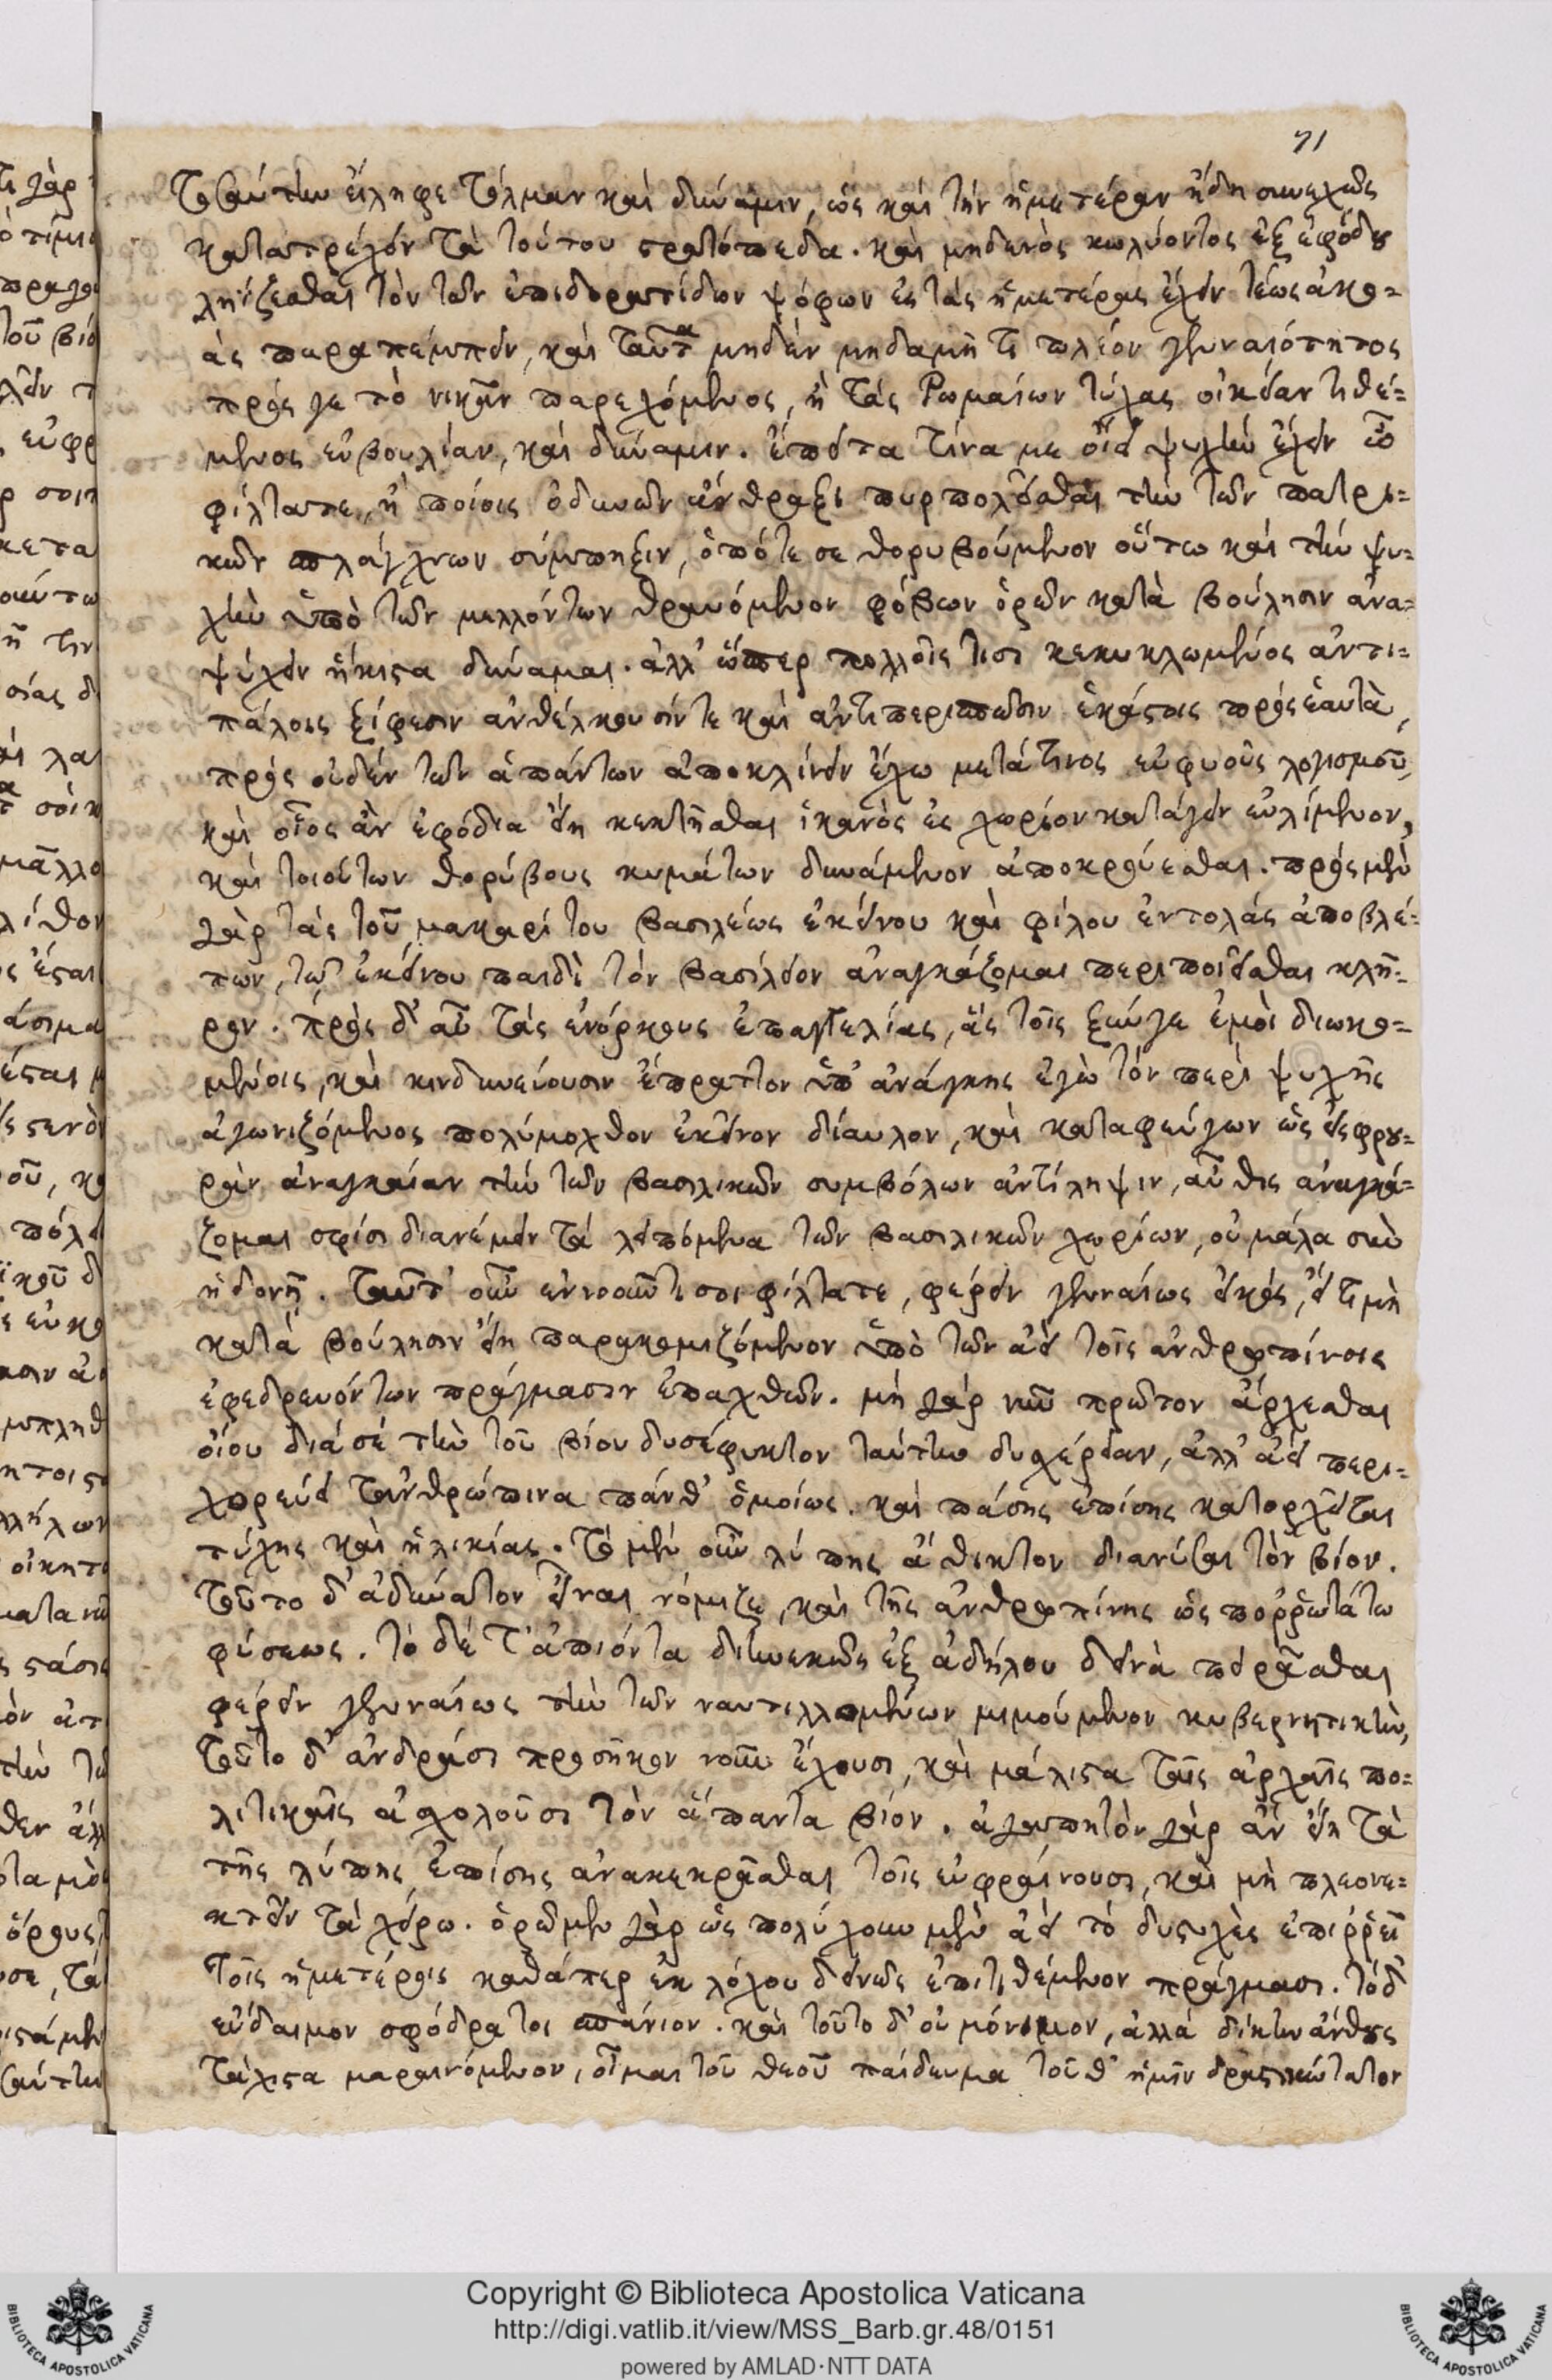 71
τοσαύτην εἴληφε τόλμαν καὶ δύναμιν, ὡς καὶ τὴν ἡμετέραν ἤδη συνεχῶς
καταστρέχειν τὰ τούτου στρατόπεδα. καὶ μηδενὸς κωλύοντος ἐξ ἐφόδου
ληΐζεσθαι τὸν τῶν ἐπιδορατίδων ψόφον ἐς τὰς ἡμετέρας ἔχειν τέως ἀκο=
ὰς παραπέμπειν, καὶ ταῦτα μηδὲν μηδαμῆ τι πλέον γενναιότητος
πρός γε τὸ νικᾶν παρεχόμενος, ἢ τὰς Ῥωμαίων τύχας οἰκείαν τιθέ=
μενος εὐβουλίαν, καὶ δύναμιν. ἔπειτα τίνα με οἴει ψυχὴν ἔχειν ὦ
φίλτατε, ἢ ποίοις ὀδυνῶν ἄνθραξι πυρπολεῖσθαι τὴν τῶν πατρι=
κῶν σπλάγχνων σύμπηξιν, ὁπότε σε θορυβούμενον οὕτω καὶ τὴν ψυ=
χὴν ὑπὸ τῶν μελλόντων θραυόμενον φόβων ὁρῶν κατὰ βούλησιν ἀνα=
ψύχειν ἥκιστα δύναμαι. ἀλλ' ὥσπερ πολλοῖς τισὶ κεκυκλωμένος ἀντι=
πάλοις ξίφεσιν ἀνθέλκουσίν τε καὶ ἀντιπερισπῶσιν ἑκάστοις πρὸς ἑαυτὰ,
πρὸς οὐδὲν τῶν ἁπάντων ἀποκλίνειν ἔχω μετά τινος εὐφυοῦς λογισμοῦ,
καὶ οἷος ἂν ἐφόδια εἴη κεκτῆσθαι ἱκανὸς ἐς χωρίον κατάγειν εὐλίμενον,
καὶ τοιούτων θορύβους κυμάτων δυνάμενον ἀποκρούεσθαι. πρὸς μὲν
γὰρ τὰς τοῦ μακαρίτου βασιλέως ἐκείνου καὶ φίλου ἐντολὰς ἀποβλέ=
πων, τῷ ἐκείνου παιδὶ τὸν βασίλειον ἀναγκάζομαι περιποιεῖσθαι κλῆ=
ρον. πρὸς δ' αὖ τὰς ἐνόρκους ἐπαγγελίας, ἃς τοῖς ξύν γε ἐμοὶ διωκο=
μένοις, καὶ κινδυνεύουσιν ἔπραττον ὑπ' ἀνάγκης ἐγὼ τὸν περὶ ψυχῆς
ἀγωνιζόμενος πολύμοχθον ἐκεῖνον δίαυλον, καὶ καταφεύγων ὡς εἰς φρου=
ρὰν ἀναγκαίαν τὴν τῶν βασιλικῶν συμβόλων ἀντίληψιν, αὖθις ἀναγκά=
ζομαι σφίσι διανέμειν τὰ λειπόμενα τῶν βασιλικῶν χωρίων, οὐ μάλα σὺν
ἡδονῇ. ταῦτ' οὖν ἐννοοῦντί σοι φίλτατε, φέρειν γενναίως εἰκὸς, εἴ τι μὴ
κατὰ βούλησιν εἴη παρακομιζόμενον ὑπὸ τῶν ἀεὶ τοῖς ἀνθρωπίνοις
ἐφεδρευόντων πράγμασιν ἐπαχθῶν. μὴ γὰρ νῦν πρῶτον ἄρχεσθαι
οἴου διὰ σὲ τὴν τοῦ βίου δυσέφικτον ταύτην δυσχέρειαν, ἀλλ' ἀεὶ περι=
χορεύει τἀνθρώπινα πάνθ' ὁμοίως. καὶ πάσης ἐπίσης κατορχεῖται
τύχης καὶ ἡλικίας. τὸ μὲν οὖν λύπης ἄθικτον διανύσαι τὸν βίον.
τοῦτο δ' ἀδύνατον εἶναι νόμιζε, καὶ τῆς ἀνθρωπίνης ὡς πορῥωτάτω
φύσεως. τὸ δέ τ' ἀπιόντα διηνεκῶς ἐξ ἀδήλου δεινὰ πειρᾶσθαι
φέρειν γενναίως τὴν τῶν ναυτιλλομένων μιμούμενον κυβερνητικὴν,
τοῦτο δ' ἀνδράσι προσῆκον νοῦν ἔχουσι, καὶ μάλιστα ταῖς ἀρχαῖς πο=
λιτικαῖς ἀσχολοῦσι τὸν ἅπαντα βίον. ἀγαπητὸν γὰρ ἂν εἴη τὰ
τῆς λύπης ἐπίσης ἀνακεκρᾶσθαι τοῖς εὐφραίνουσι, καὶ μὴ πλεονε=
κτεῖν τὰ χείρω. ὁρῶμεν γὰρ ὡς πολύχουν μὲν ἀεὶ τὸ δυστυχὲς ἐπιῤῥεῖ
τοῖς ἡμετέροις καθάπερ ἐκ λόχου δεινῶς ἐπιτιθέμενον πράγμασι. τὸ δ'
εὔδαιμον σφόδρα τοι σπάνιον. καὶ τοῦτο δ' οὐ μόνιμον, ἀλλὰ δίκην ἄνθους
τάχιστα μαραινόμενον, οἶμαι τοῦ θεοῦ παίδευμα τοῦθ' ἡμῖν δραστικώτατον
Copyright © Biblioteca Apostolica Vaticana
http://digi.vatlib.it/view/MSS_Barb.gr.48/0151
powered by AMLAD·NTT DATA
BIBLIOTECA APOSTOLICA VATICANA
BIBLIOTECA APOSTOLICA VATICANA